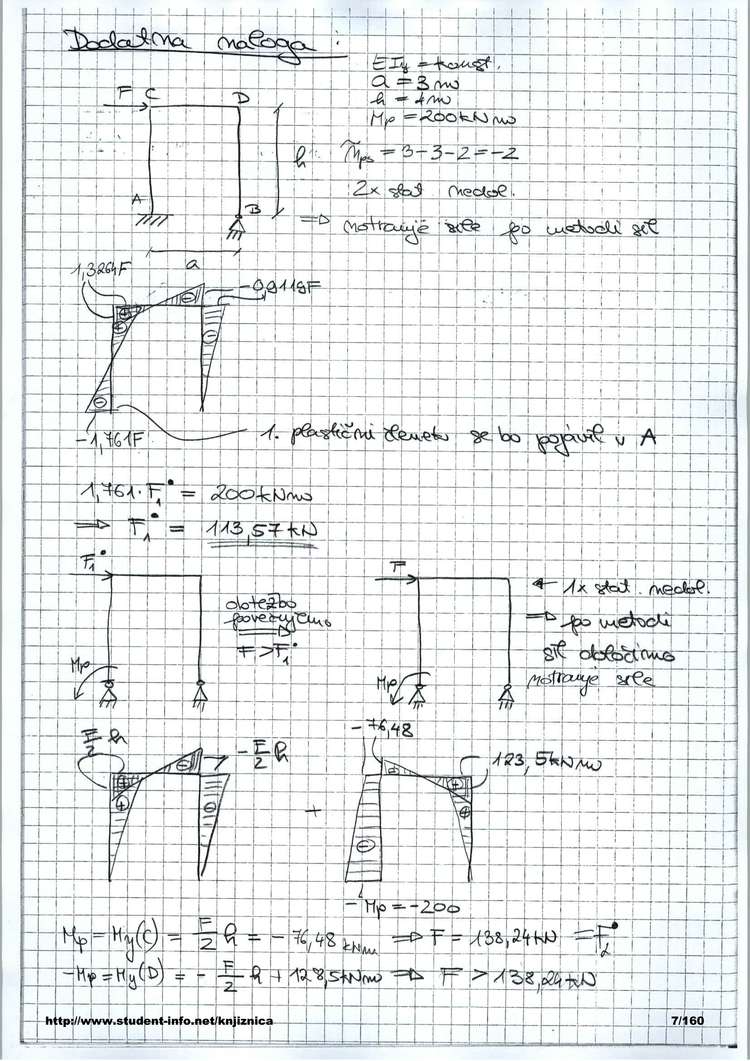 Dodatna naloga :
EIy = konst.
a = 3m
h = 4m
Mp = 200kNm
F C D
h
ñps = 3-3-2 = -2
2x stat nedol.
A B
⇒ notranje sile po metodi sil
a
1,3264F
-0,9119F
-1,761F
1. plastični členek se bo pojavil v A
1,761·F₁• = 200kNm
⇒ F₁• = 113,57kN
F₁•
F
← 1x stat. nedol.
obtežbo
povečujemo
⇒
F > F₁•
⇒ po metodi
sil določimo
notranje sile
Mp
Mp
F/2 h
-F/2 h
-76,48
123,5kNm
+
-Mp = -200
Mp = My(C) = F/2 h = -76,48 kNm ⇒ F = 138,24kN = F₂•
-Mp = My(D) = -F/2 h + 128,5kNm ⇒ F > 138,24kN
http://www.student-info.net/knjiznica
7/160